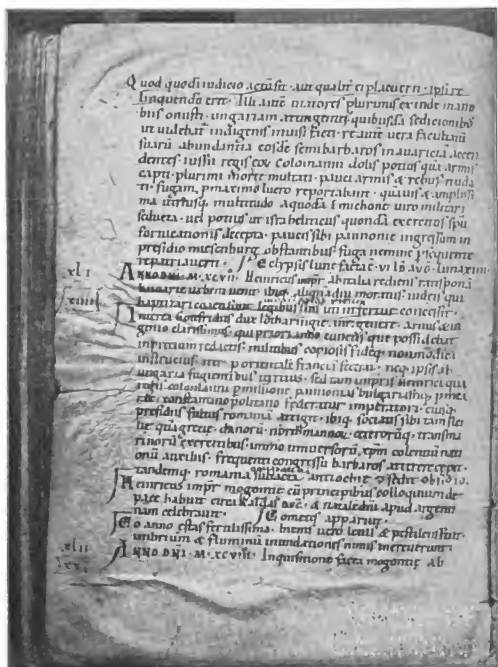 Quod quodi iudicio actu sit · aut qualit ei placuerit · ipsi re
linquendu erit · Illi aute maiores plurimis exinde mano
biis onusti · ungariam attingentes quibusda sedicionibꝰ
ut videbat indigenis inuisi facti · re aute uera facultatu
suaru abundantia eosde semibarbaros in auaricia accen
dentes iussu regis eoꝝ Colomanni dolis potius qua armis
capti · plurimi morte multati · pauci armis & rebus nuda
ti · fugam, p maximo lucro reportabant · quauis & amplissi
ma
multitudo a quoda Emichone uiro militari
seducta · uel potius ut isra heliticus quonda exercitus spu
fornicationis decepta · paucis sibi pannonie ingressum in
presidio miesenburg obstantibus fuga nemine psequente
repatriauerit · Eclypsis lune facta
xli
ANNO DNI · M · XC VII · Heinricus impr ab italia rediens
baioarie urbem uenit · ibiq; aliquadiu moratus iudeis qui
baptizari coacti sunt legibus suis uti
concessit ·
Interea Gotefridus dux
armis & in
genio clarissimus · qui priori anno cunctis que possidebat
in precium redactis · militibus copiosis fideq; non modica
instructus iter p orientale francia fecerat · neq; ipse ab
ungaria fugientibus territus · sed tam impris Heinrici qua
regis colomanni pmissione pannonias bulgariasq; penet
rat · constantinopolitano federatur imperatori · eiusq;
presidiis fultus romania attigit · ibiq; sociatis sibi
gregibꝰ danoru · nordmannoꝝ ceterorūq; transma
rinoru exercitibus · immo uniuersoru, xpm colentiu nati
onu auxiliis · frequenti congressu barbaros atterere cepit ·
tandemq; romania subacta antiochie possedit obsidio.
Heinricus impr mogontie cu principibus colloquium de
pace habuit circa kldas dec · & natale dni apud argenti
nam celebrauit · Cometes apparuit ·
Eo anno estas fertilissima · hiems uero lenis & pestilens fuit ·
imbrium & fluminu inundationes nimis increuerunt ·
xlii
ANNO DNI · M · XC VIII · Inquisitione facta mogontie ab